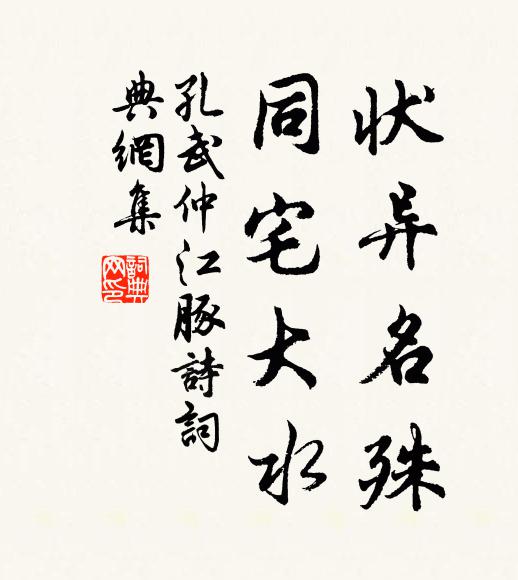 状异名殊
同宅大水
孔武仲江豚詩詞
典網集
詞典
网印